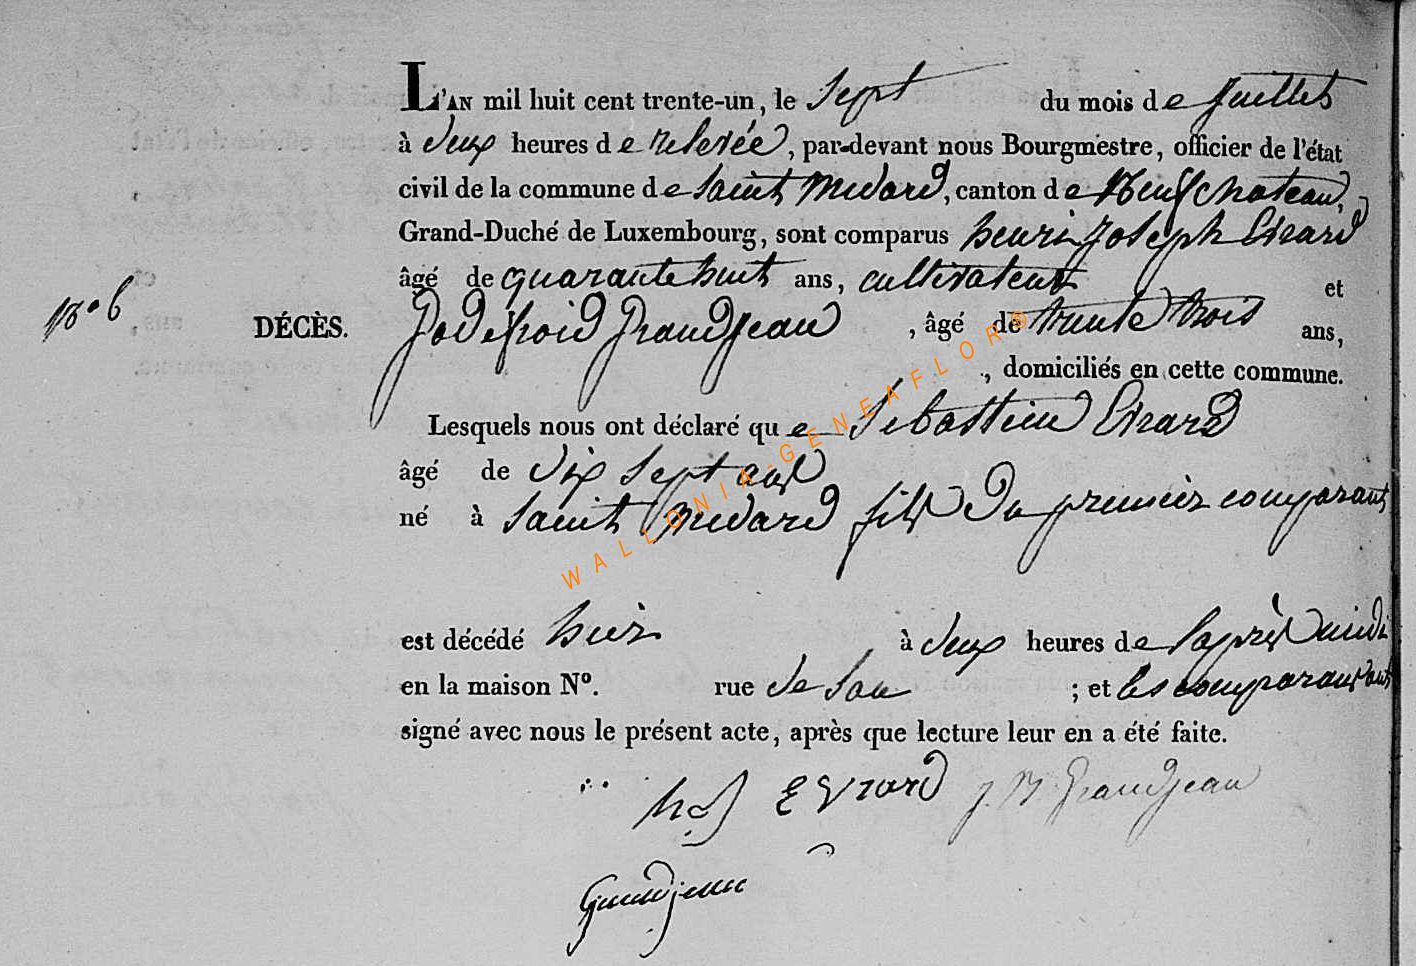 L'AN mil huit cent trente-un, le sept du mois de Juillet
à deux heures de relevée, par-devant nous Bourgmestre, officier de l'état
civil de la commune de Saint Medard, canton de Neufchateau,
Grand-Duché de Luxembourg, sont comparus henri joseph Evrard
âgé de quarante huit ans, cultivateur et
No 6
DÉCÈS. Godefroid Grandjean, âgé de trente trois ans,
, domiciliés en cette commune.
Lesquels nous ont déclaré que Sebastien Evrard
âgé de dix sept ans
né à Saint Medard fils du premier comparant
est décédé hier à deux heures de l'après midi
en la maison No. rue de ; et les comparans ont
signé avec nous le présent acte, après que lecture leur en a été faite.
Evrard Grandjean
Grandjean
WALLONIA-GENEAFLOR®